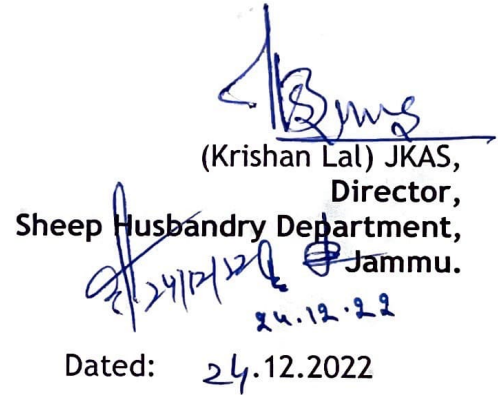 (Krishan Lal) JKAS,
Director,
Sheep Husbandry Department,
Jammu.
24/12/22
24.12.22
Dated: 24.12.2022